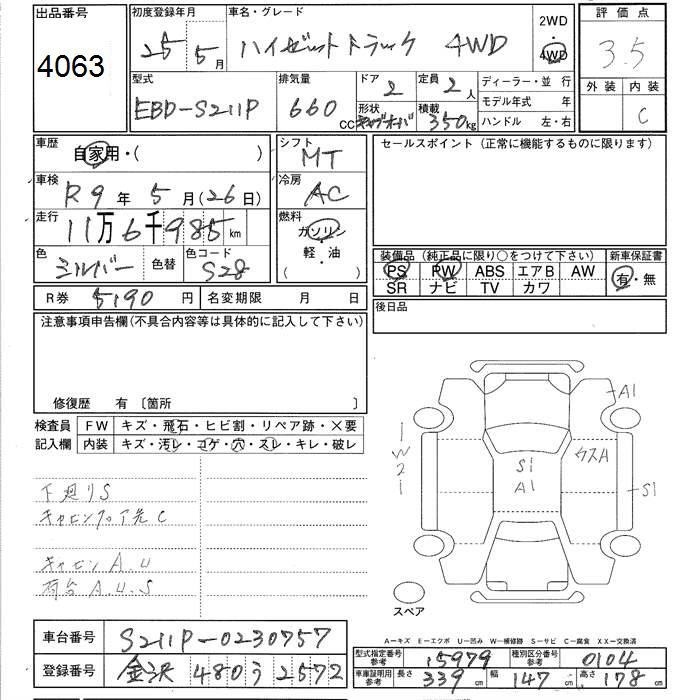 出品番号
4063
初度登録年月
25年5月
車名・グレード
ハイゼットトラック 4WD
2WD
・
4WD
評価点
3.5
外装 内装
C
型式
EBD-S211P
排気量
660
CC
ドア
2
形状
キャブオーバ
定員
2人
積載
350kg
ディーラー・並 行
モデル年式 年
ハンドル 左・右
車歴
自家用・( )
車検
R9年5月(26日)
走行
11万6千985km
色
シルバー
色替
色コード
S28
シフト
MT
冷房
AC
燃料
ガソリン
・
軽・油
( )
セールスポイント(正常に機能するものに限ります)
装備品(純正品に限り○をつけて下さい)
PS PW ABS エアB AW
SR ナビ TV カワ
新車保証書
有・無
R券 5190円
名変期限 月 日
後日品
注意事項申告欄(不具合内容等は具体的に記入して下さい)
修復歴 有 〔箇所 〕
検査員
記入欄
FW キズ・飛石・ヒビ割・リペア跡・×要
内装 キズ・汚レ・コゲ・穴・スレ・キレ・破レ
下廻りS
キャビンフロア先C
キャビンA.U
荷台A.U.S
A1
1
W
2
1
S1
A1
ウスA
S1
スペア
A―キズ E―エクボ U―凹み W―補修跡 S―サビ C―腐食 XX―交換済
車台番号
S211P-0230757
登録番号
金沢 480う2572
型式指定番号
参考
15979
種別区分番号
参考
0104
車庫証明用
参考
長さ 339cm
幅 147cm
高さ 178cm